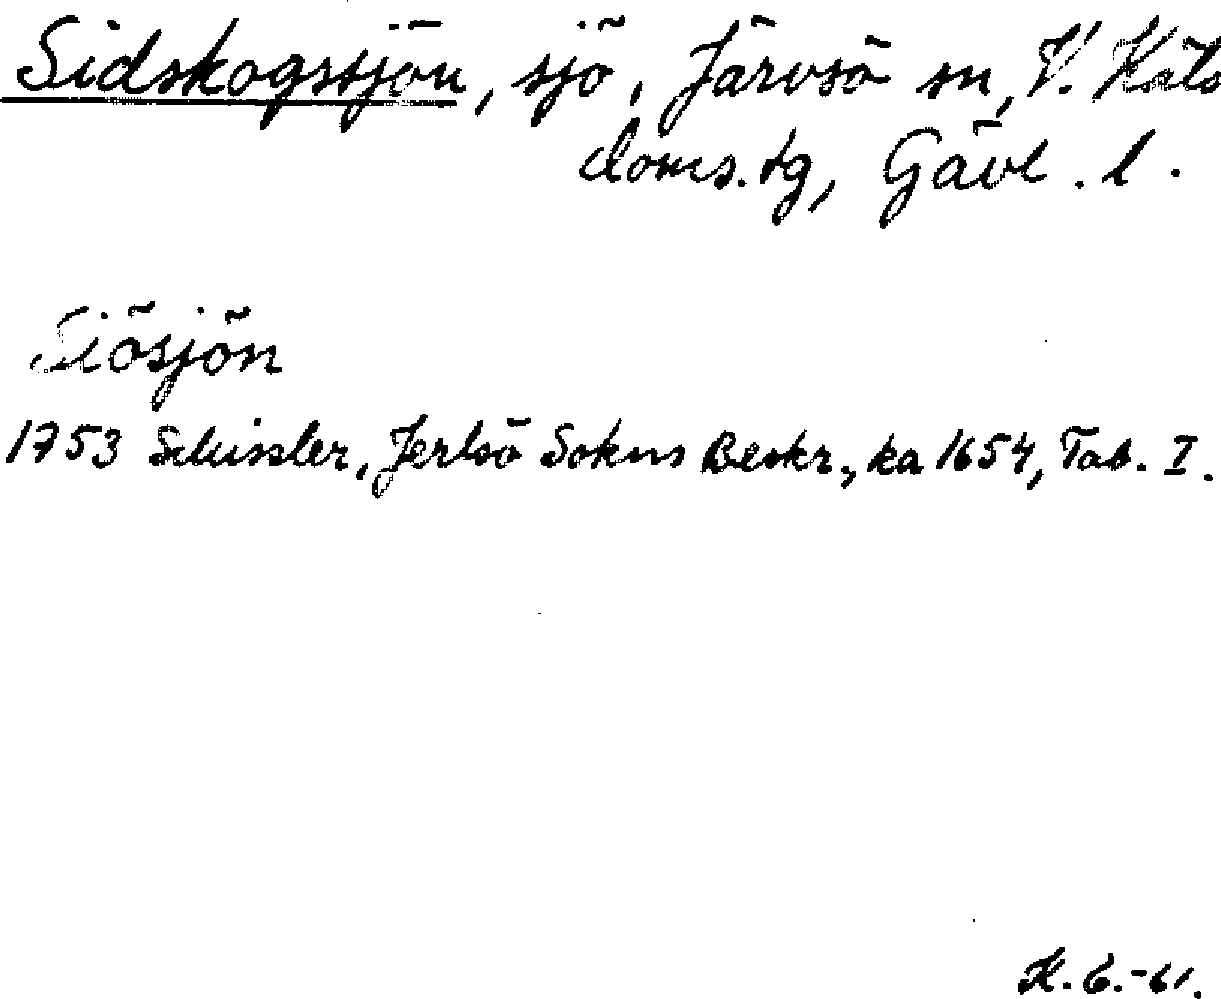 Sidskogssjön, sjö, Järvsö sn, V. Häls
doms.tg, Gävl. l.
Siösjön
1753 Schissler, Jerlsö Sokns Beskr., ka 1654, Tab. I.
H. G. -61.